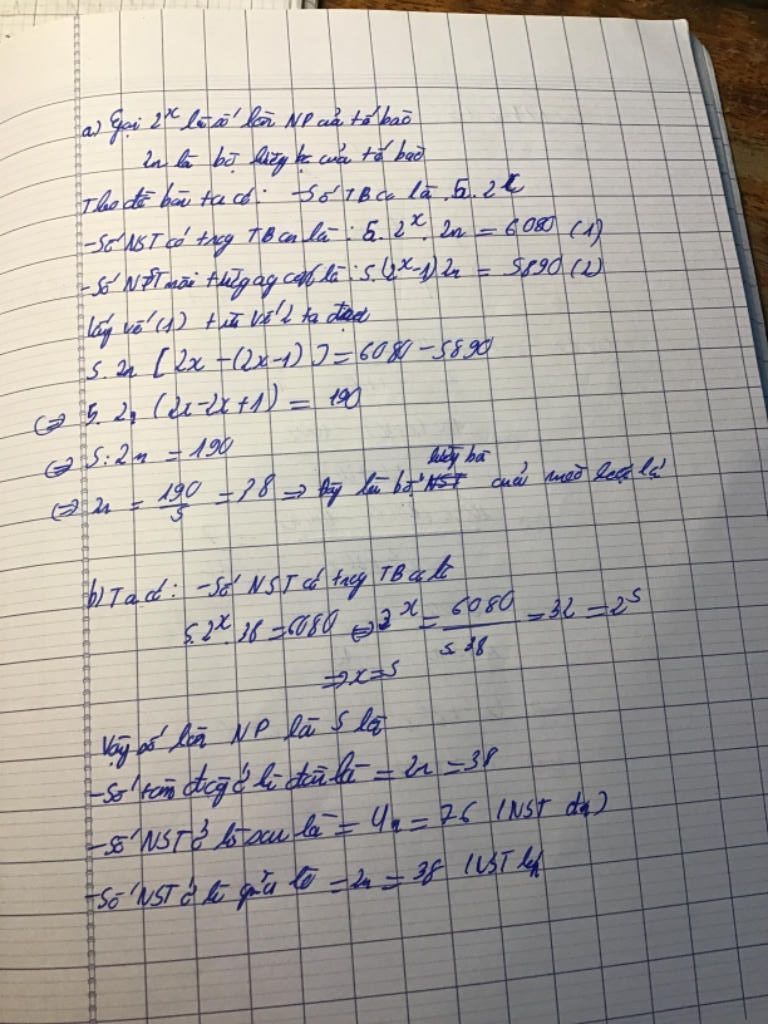 a) Gọi 2^x là số lần NP của tế bào
2n là bộ lưỡng bc của tế bào
Theo đề bài ta có: -Số TB con là 5.2^x
-Số NST có trog TB con là: 5.2^x.2n = 6080 (1)
-Số NST môi là: 5.(2^x-1)2n = 5890 (2)
lấy vế (1) trừ vế 2 ta được
5.2n [2x-(2x-1)] = 6080-5890
<=> 5.2n (2x-2x+1) = 190
<=> 5.2n = 190
<=> 2n = 190/5 = 38 => đây là bộ NST lưỡng bô của loài
b) Ta có: -Số NST có trog TB con là
5.2^x.38 = 6080 <=> 2^x = 6080/5.38 = 32 = 2^5
=> x=5
Vậy số lần NP là 5 lần
-Số tâm động ở kì đầu là = 2n = 38
-Số NST ở kì sau là = 4n = 76 (NST đơn)
-Số NST ở kì giữa là = 2n = 38 (NST kép